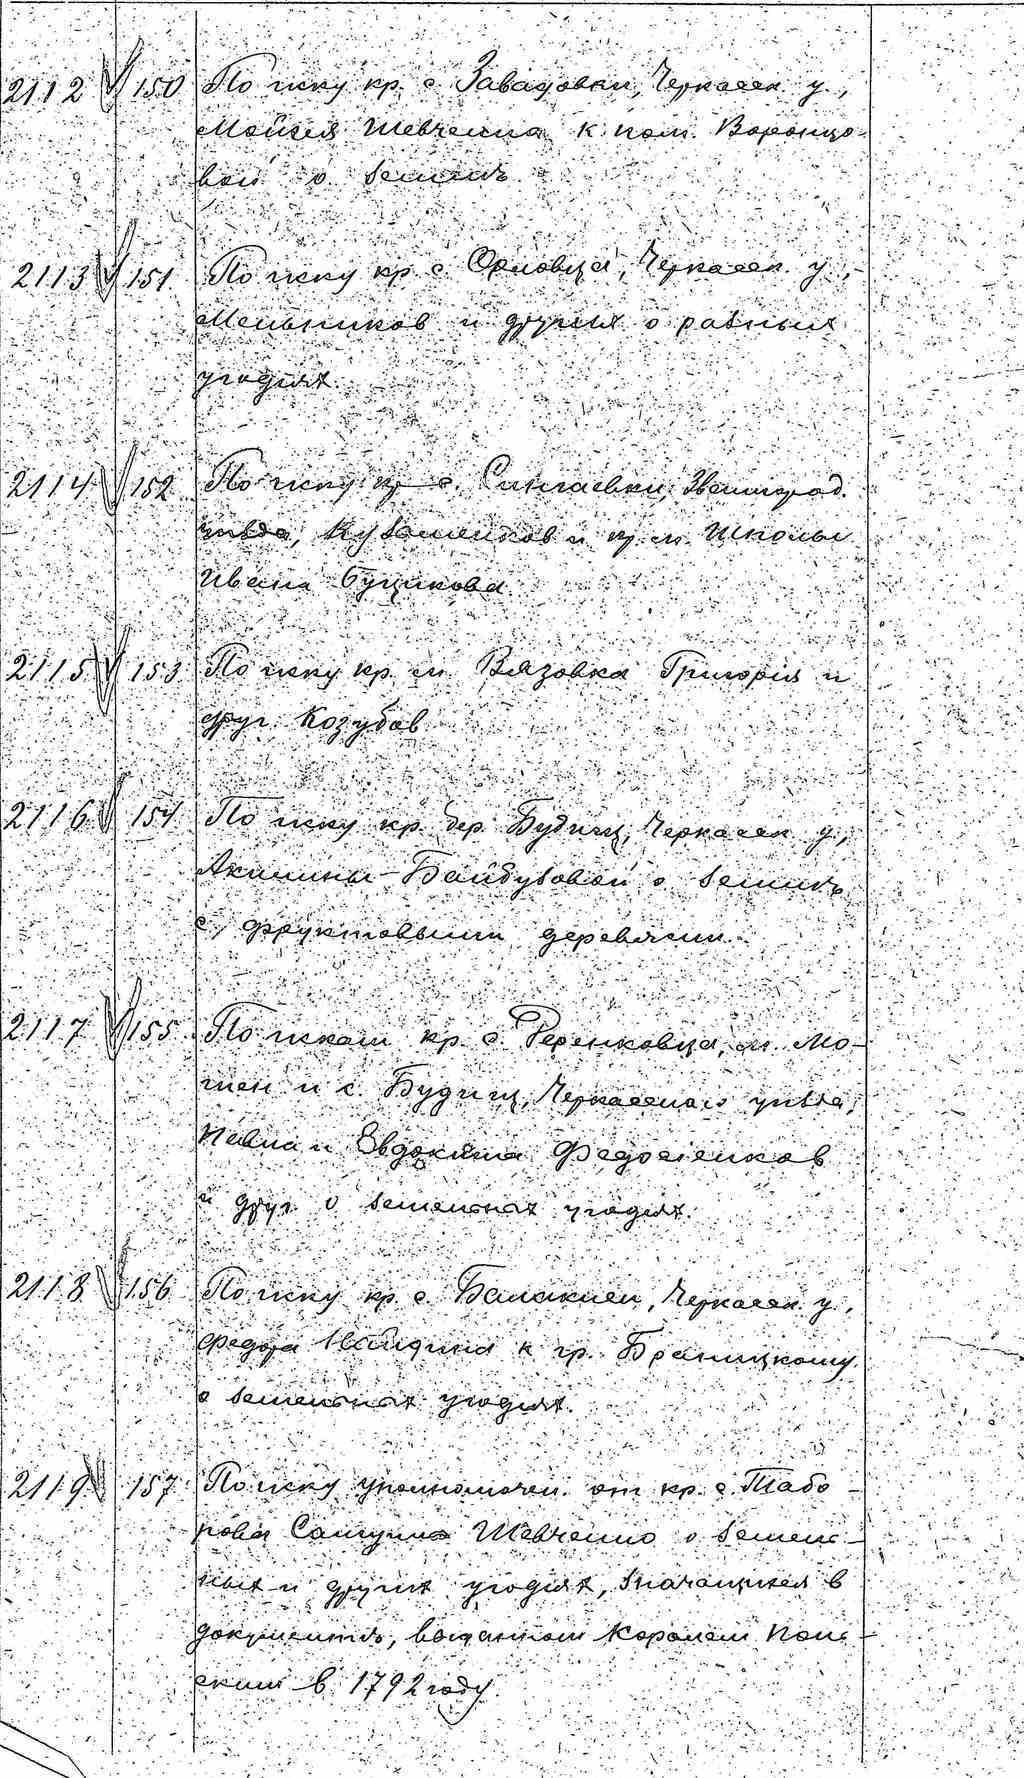 2112 150 По иску кр. с. Завадовки, Черкасск. у.,
Мойсея Шевченка к пом. Воронцо-
вой о земле
2113 151 По иску кр. с. Орловца, Черкасск. у.,
Мельников и других о разных
угодиях.
2114 152 По иску кр. с. Звенигород.
уезда, и кр. м. Шполы
Ивана Буцикова
2115 153 По иску кр. м. Вязовка Григорія и
друг. Козубов
2116 154 По иску кр. дер. Будищ, Черкасск. у.,
Акилины Байбузовой о земле
с фруктовыми деревями.
2117 155 По искам кр. с. м. Мо-
шен и с. Будищ, Черкасскаго уезда,
Павла и Федосенков
и друг. о земельных угодиях.
2118 156 По иску кр. с. Балаклеи, Черкасск. у.,
Федора Найдина к гр. Браницкому
о земельных угодиях.
2119 157 По иску уполномочен. от кр. с. Табо-
рова Самуила Шевченко о земель-
ных и других угодиях, значащихся в
документе, выданном Королем Поль-
ским в 1792 году.